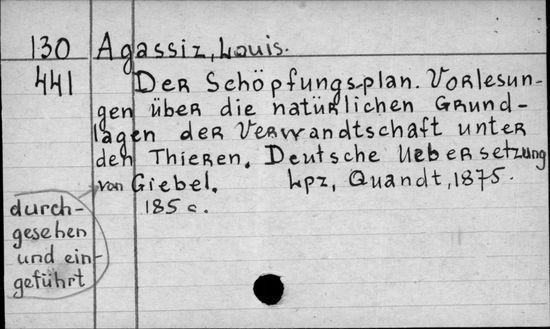 130 Agassiz, Louis.
441 Der Schöpfungsplan. Vorlesun-
gen über die natürlichen Grund-
lagen der Verwandtschaft unter
den Thieren. Deutsche Uebersetzung
von Giebel. Lpz, Quandt, 1875.
185 c.
durch-
gesehen
und ein-
geführt